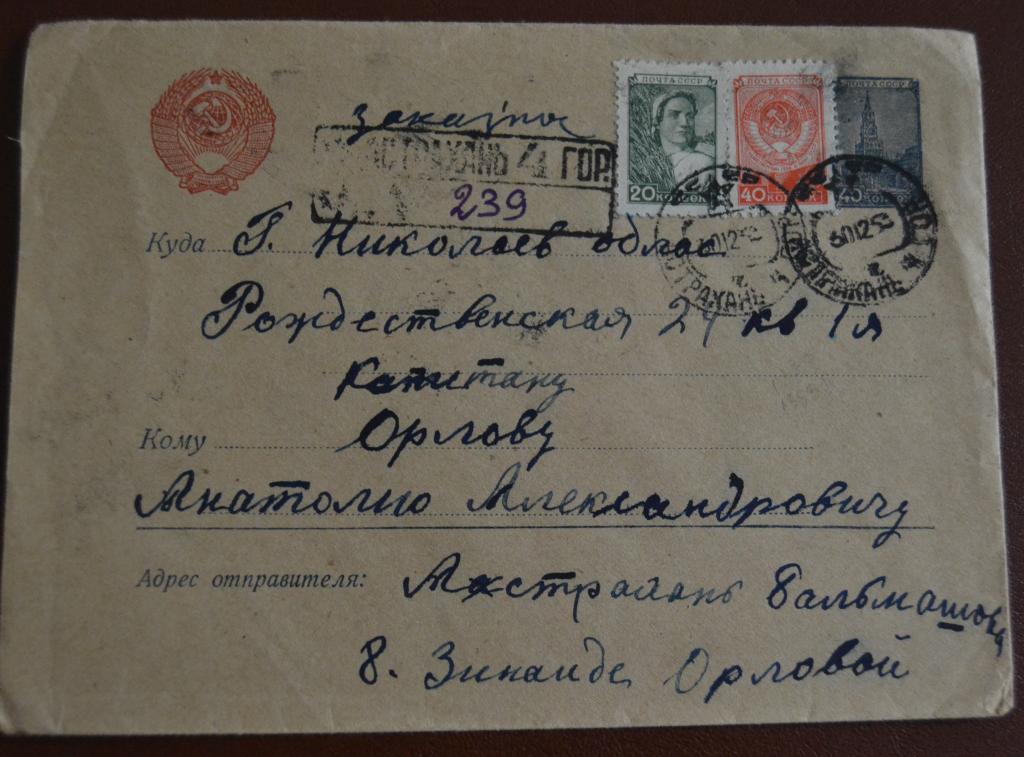 заказное
АСТРАХАНЬ 4 ГОР.
239
ПОЧТА СССР
20 КОПЕЕК
ПОЧТА СССР
40 КОПЕЕК
ПОЧТА СССР
40 КОПЕЕК
АСТРАХАНЬ
АСТРАХАНЬ
Куда Г. Николаев облас
Рождественская 24 кв 1я
Капитану
Кому Орлову
Анатолию Александровичу
Адрес отправителя: Астрахань Бальмашова
8. Зинаиде Орловой